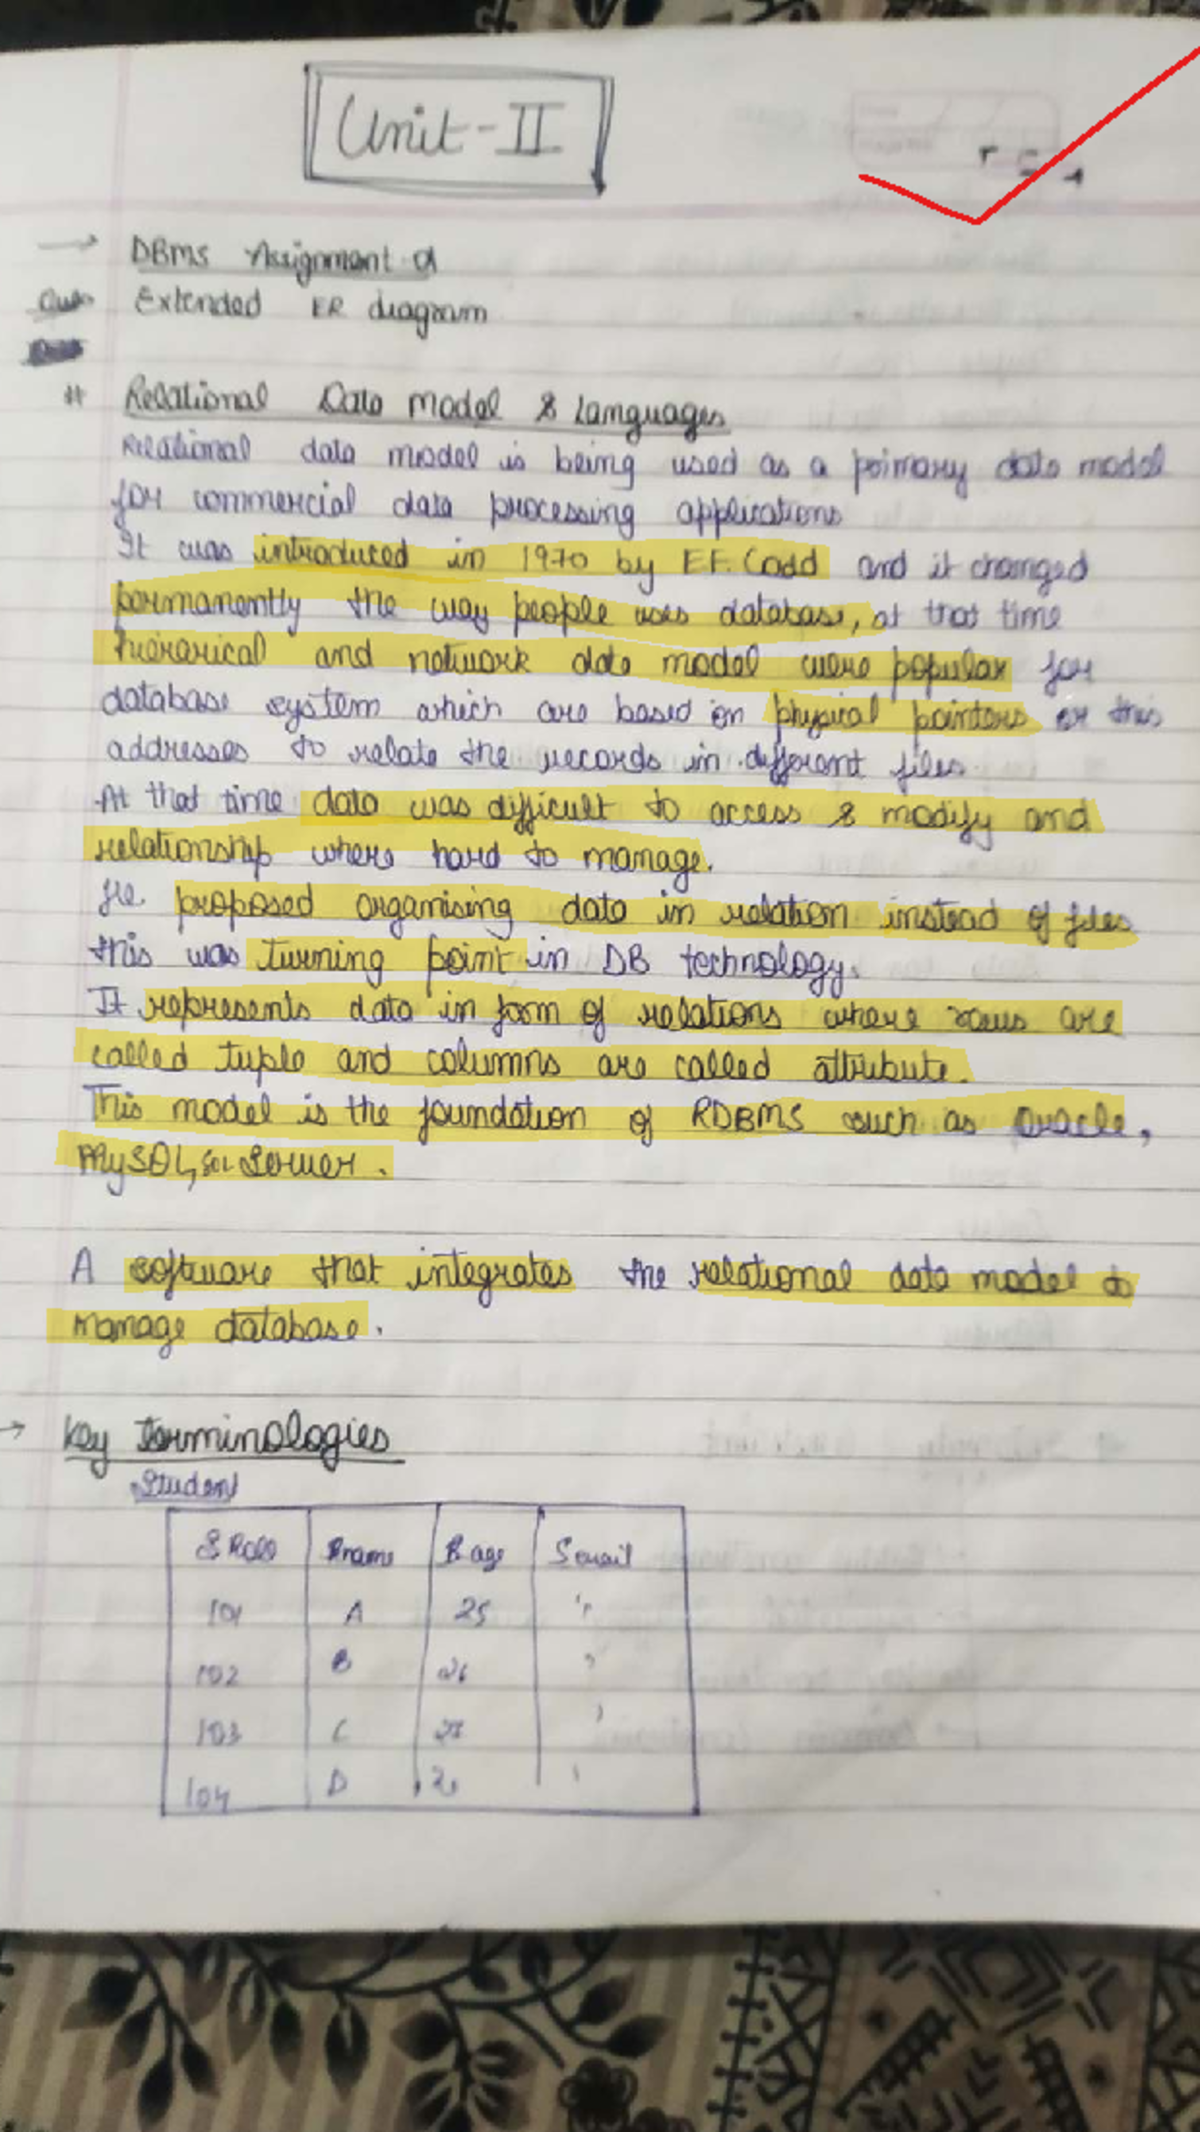 Unit-II
DBMS Assignment
Ques Extended ER diagram
# Relational Data Model & Languages
Relational data model is being used as a primary data model
for commercial data processing applications
It was introduced in 1970 by E.F. Codd and it changed
permanently the way people uses database, at that time
and network data model were popular for
database system which are based on physical pointers or this
addresses to relate the records in different files
At that time data was difficult to access & modify and
relationship where hard to manage.
He proposed organising data in relation instead of files
this was turning point in DB technology.
It represents data in form of relations where rows are
called tuple and columns are called attribute.
This model is the foundation of RDBMS such as Oracle,
MySQL, SQL Server.
A software that integrates the relational data model to
manage database.
→ Key Terminologies
Student
S Roll Sname S age Semail
101 A 25 "
102 B 26 "
103 C
104 D